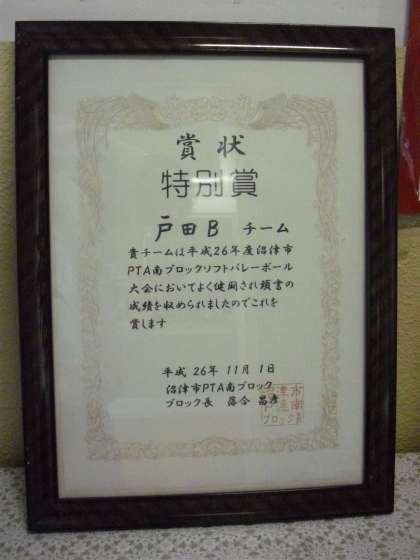 賞状
特別賞
戸田B チーム
貴チームは平成26年度沼津市
PTA南ブロックソフトバレーボール
大会においてよく健闘され頭書の
成績を収められましたのでこれを
賞します
平成 26年 11月 1日
沼津市PTA南ブロック
ブロック長 落合 昌彦